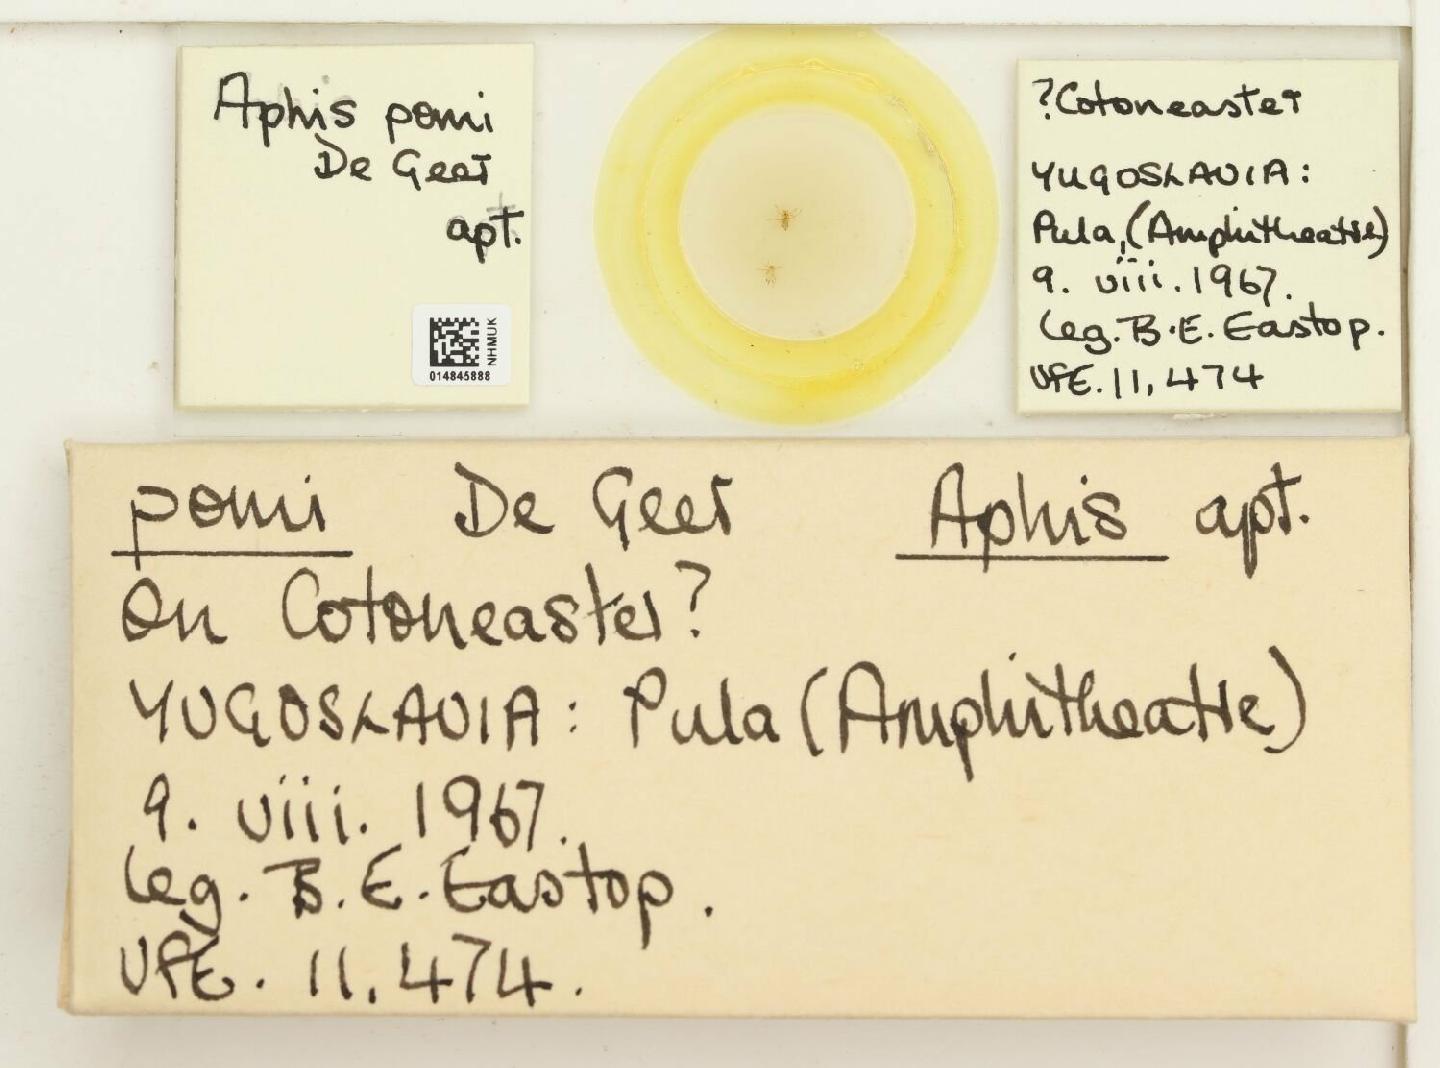 Aphis pomi
De Geer
apt.
NHMUK
014845888
?Cotoneaster
YUGOSLAVIA:
Pula, (Amphitheatre)
9. viii. 1967.
leg. B. E. Eastop.
VFE. 11,474
pomi De Geer Aphis apt.
On Cotoneaster?
YUGOSLAVIA: Pula (Amphitheatre)
9. viii. 1967.
leg. B. E. Eastop.
VFE. 11,474.